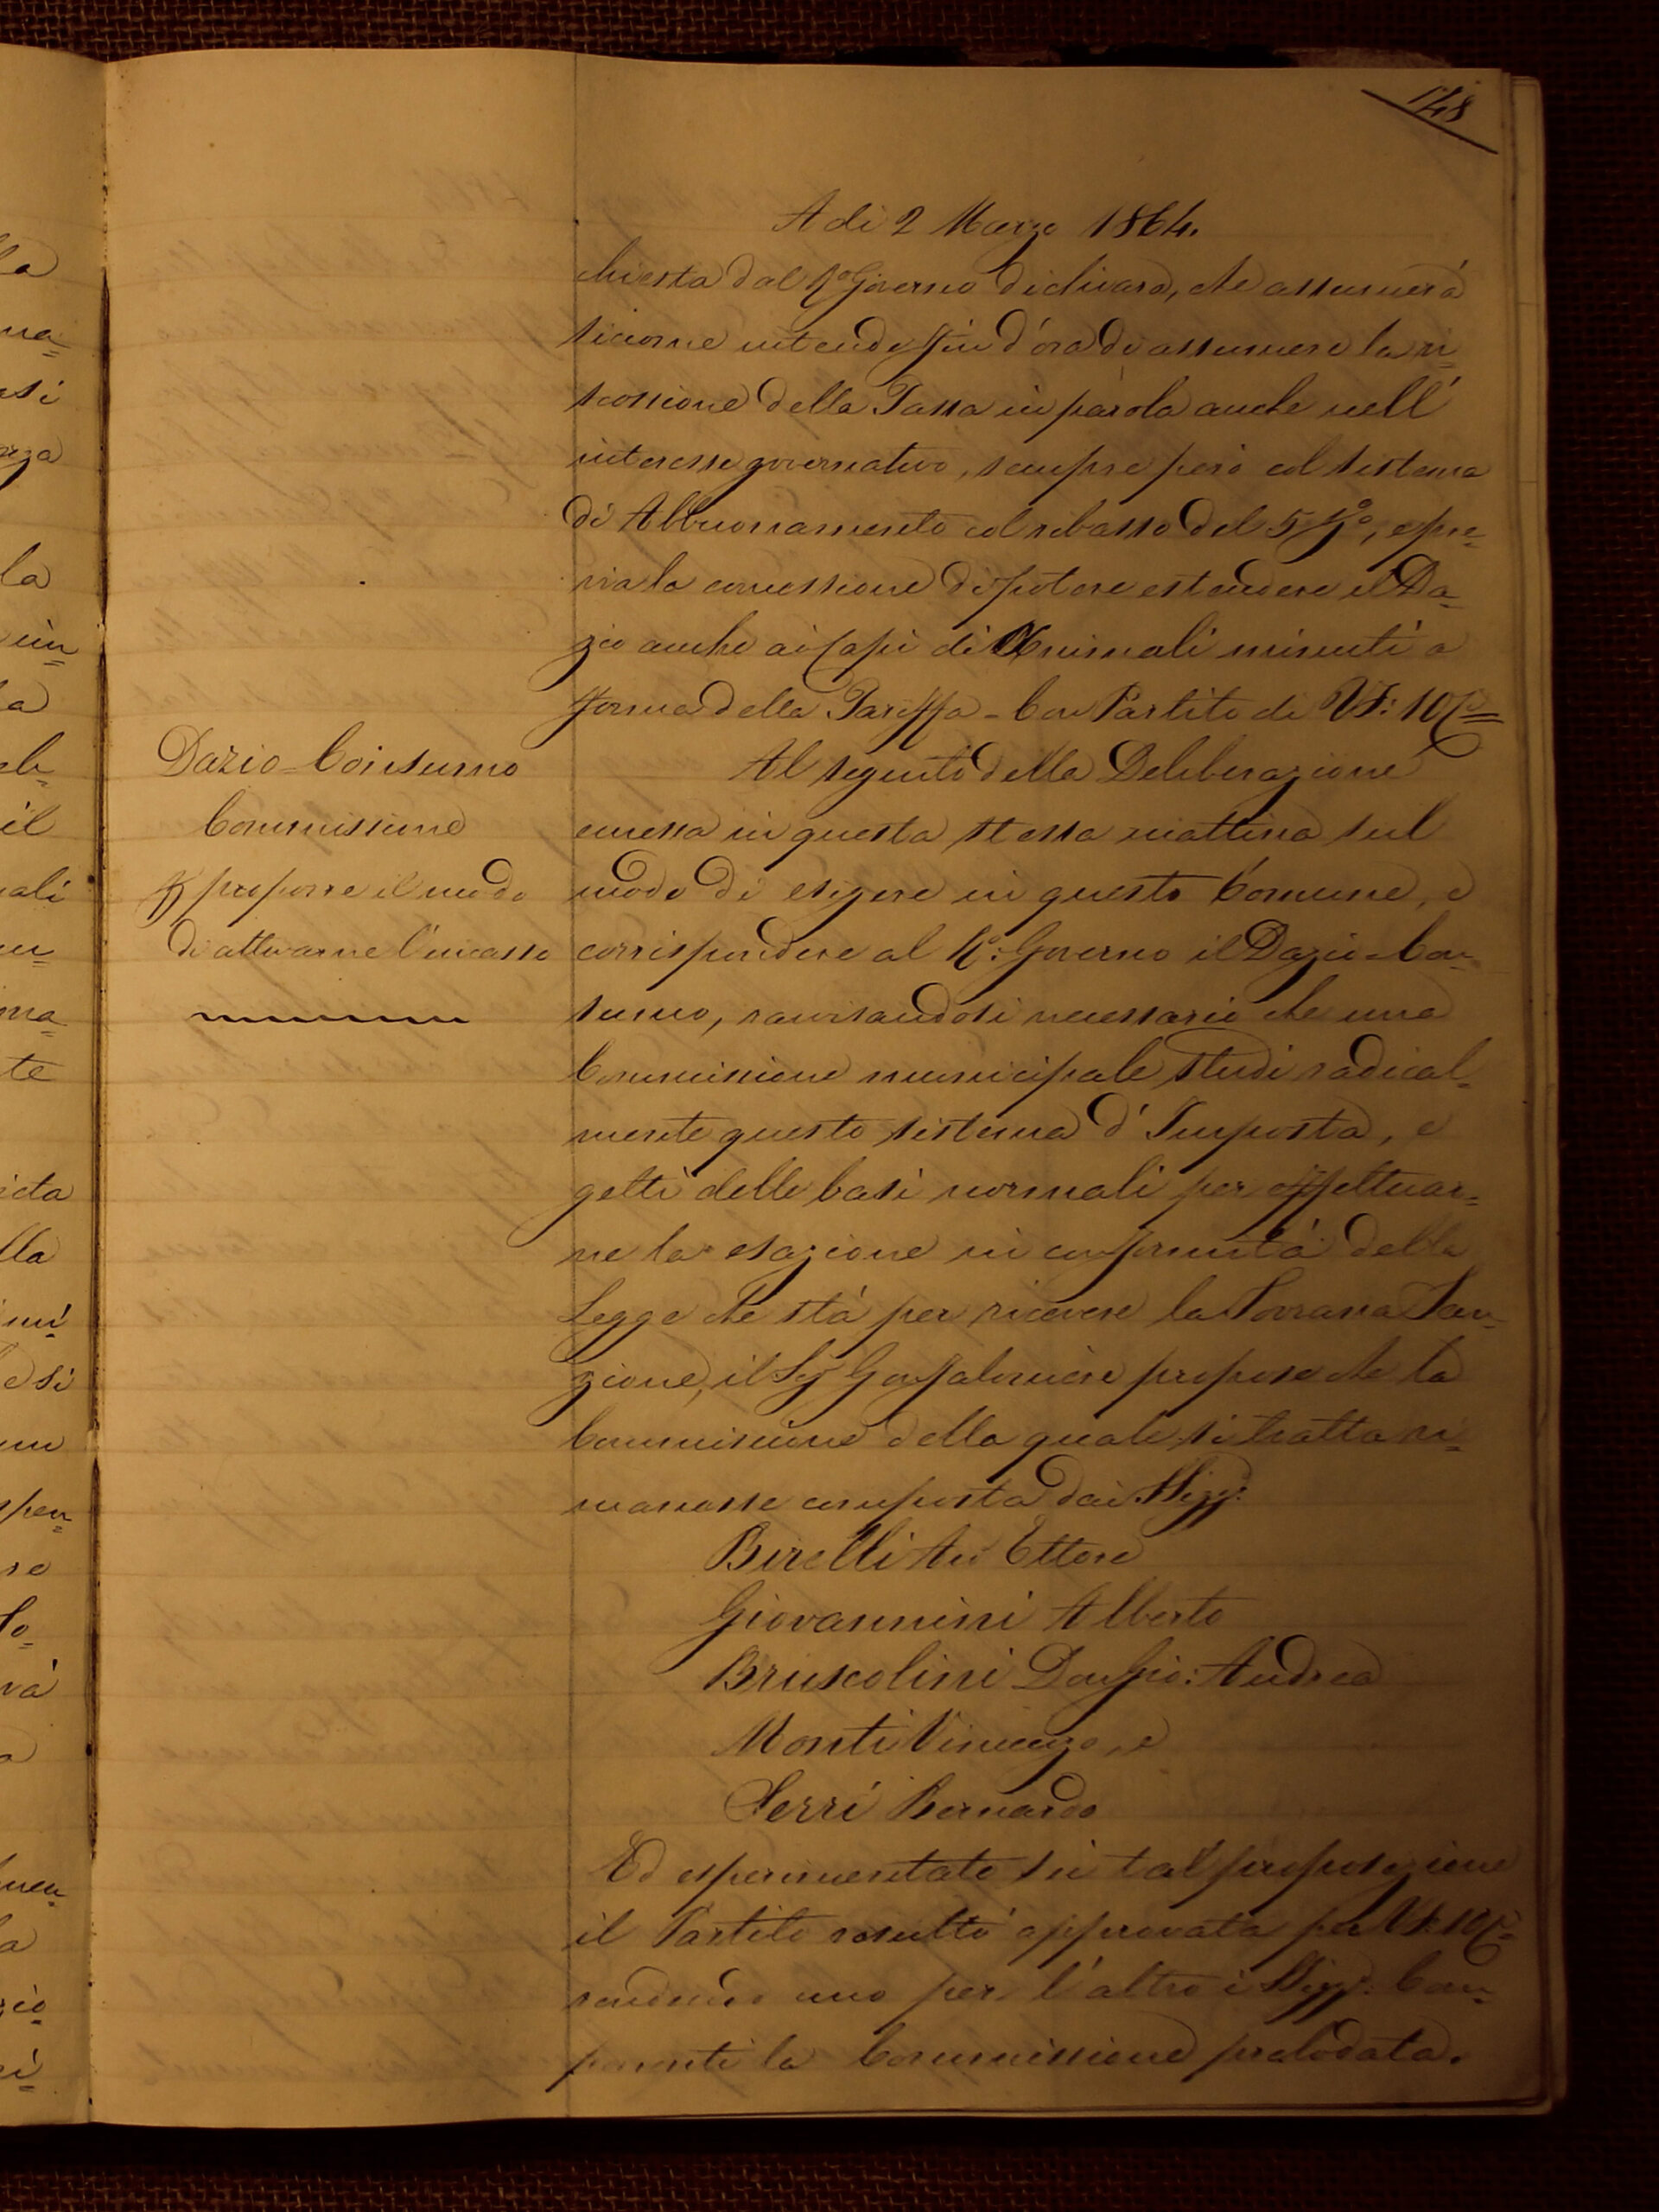 148
A di 2 Marzo 1864.
chiesta dal R.o Governo dichiara, che assumerà
siccome intende fin d'ora di assumere la ri=
scossione della Tassa in parola anche nell'
interesse governativo, sempre però col sistema
di Abbuonamento col ribasso del 5 p%, e pre=
via la concessione di potere estendere il Da=
zio anche ai Capi di Animali minuti a
forma della Tariffa - Con Partito di Vf: 10
Dazio-Consumo
Commissione
p proporre il modo
di attivarne l'incasso
Al seguito della Deliberazione
emessa in questa stessa mattina sul
modo di esigere in questo Comune, e
corrispondere al R.o Governo il Dazio=Con=
sumo, ravvisandosi necessario che una
Commissione municipale studi radical=
mente questo sistema d'Imposta, e
getti delle basi normali per effettuar=
ne la esazione in conformità della
Legge che stà per ricevere la Sovrana San=
zione, il Sig Gonfaloniere propose che la
Commissione della quale si tratta ri=
manesse composta dai Sigg:
Birelli Ettore
Giovannini Alberto
Bruscolini Don Gio: Andrea
Monti Vincenzo, e
Serri Bernardo
Ed esperimentato su tal proposizione
il Partito resultò approvata per Vf: 10
rendendo uno per l'altro i Sigg: Com=
ponenti la Commissione prelodata.